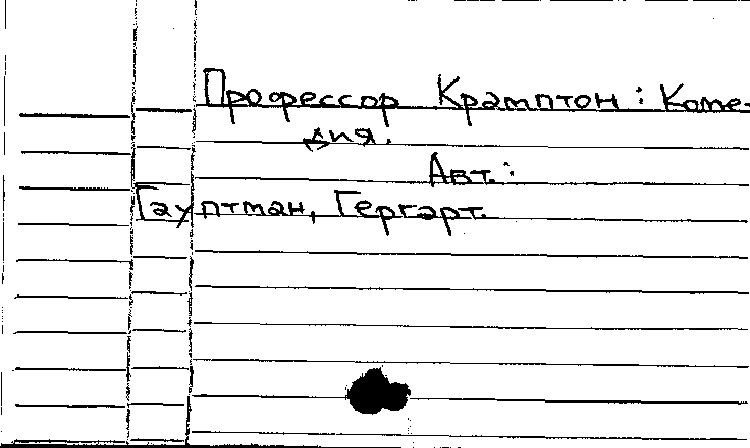 Профессор Крамптон : Коме-
дия.
Авт. :
Гауптман, Гергарт.